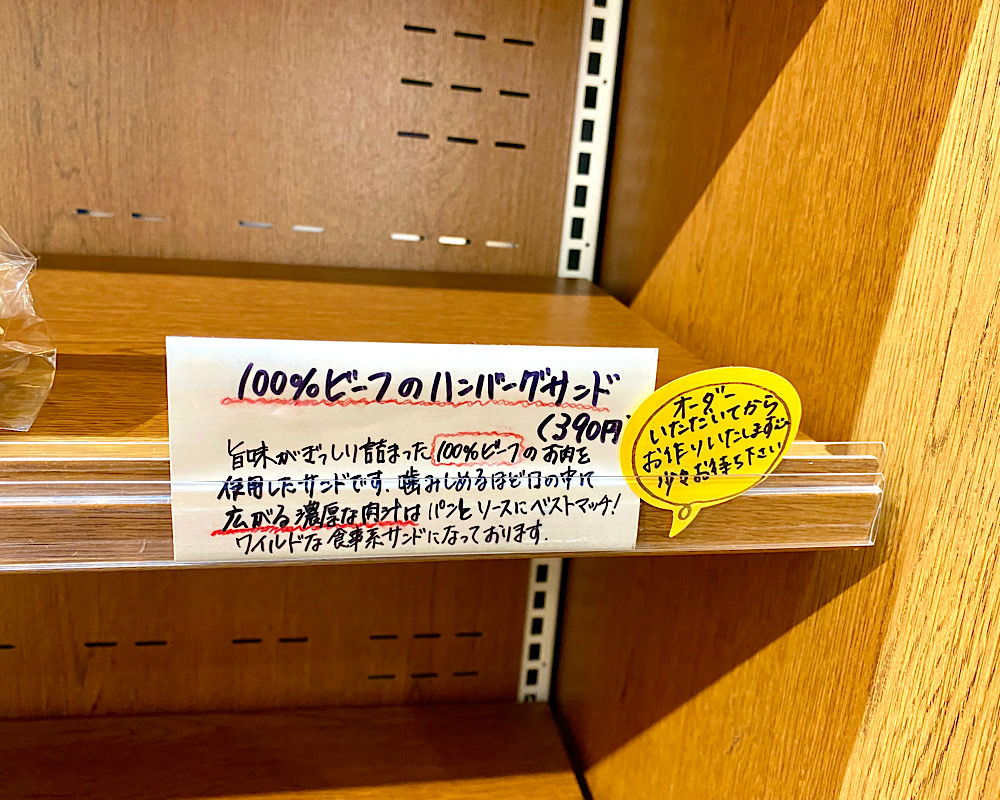 100%ビーフのハンバーグサンド
(390円)
旨味がぎっしり詰まった100%ビーフのお肉を
使用したサンドです。噛みしめるほど口の中に
広がる濃厚な肉汁はパンとソースにベストマッチ!
ワイルドな食事系サンドになっております。
オーダー
いただいてから
お作りいたします
少々お待ち下さい